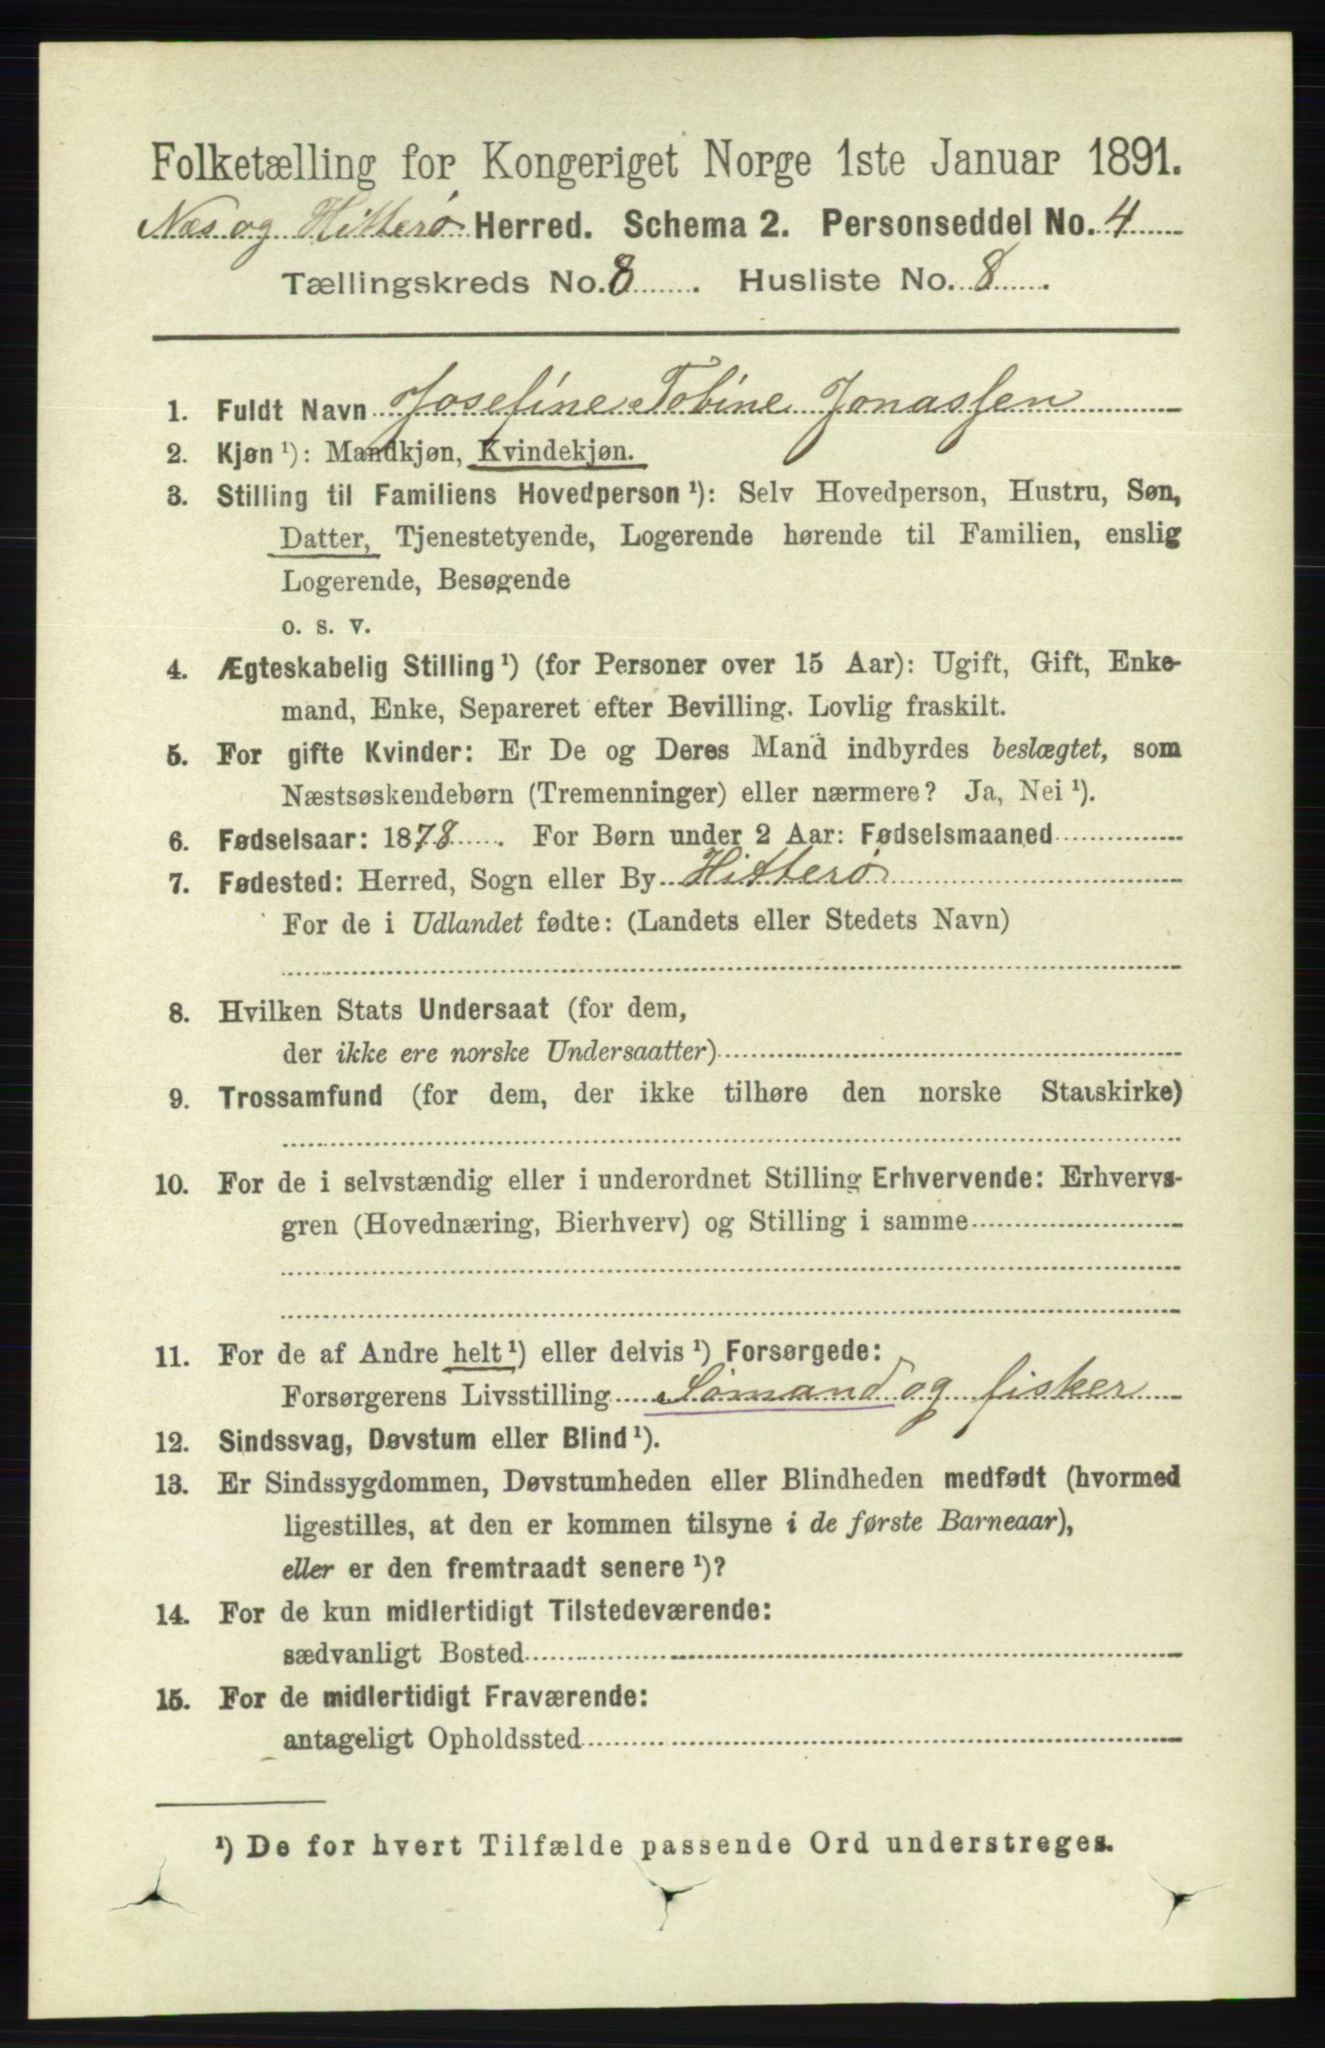 Folketælling for Kongeriget Norge 1ste Januar 1891.
Næs og Hitterø Herred. Schema 2. Personseddel No. 4
Tællingskreds No. 8. Husliste No. 8.
1. Fuldt Navn Josefine Tobine Jonassen
2. Kjøn ¹): Mandkjøn, Kvindekjøn.
3. Stilling til Familiens Hovedperson ¹): Selv Hovedperson, Hustru, Søn,
Datter, Tjenestetyende, Logerende hørende til Familien, enslig
Logerende, Besøgende
o. s. v.
4. Ægteskabelig Stilling ¹) (for Personer over 15 Aar): Ugift, Gift, Enke-
mand, Enke, Separeret efter Bevilling. Lovlig fraskilt.
5. For gifte Kvinder: Er De og Deres Mand indbyrdes beslægtet, som
Næstsøskendebørn (Tremenninger) eller nærmere? Ja, Nei ¹).
6. Fødselsaar: 1878. For Børn under 2 Aar: Fødselsmaaned
7. Fødested: Herred, Sogn eller By Hitterø
For de i Udlandet fødte: (Landets eller Stedets Navn)
8. Hvilken Stats Undersaat (for dem,
der ikke ere norske Undersaatter)
9. Trossamfund (for dem, der ikke tilhøre den norske Statskirke)
10. For de i selvstændig eller i underordnet Stilling Erhvervende: Erhvervs-
gren (Hovednæring, Bierhverv) og Stilling i samme
11. For de af Andre helt ¹) eller delvis ¹) Forsørgede:
Forsørgerens Livsstilling Sømand og fisker
12. Sindssvag, Døvstum eller Blind ¹).
13. Er Sindssygdommen, Døvstumheden eller Blindheden medfødt (hvormed
ligestilles, at den er kommen tilsyne i de første Barneaar),
eller er den fremtraadt senere ¹)?
14. For de kun midlertidigt Tilstedeværende:
sædvanligt Bosted
15. For de midlertidigt Fraværende:
antageligt Opholdssted
¹) De for hvert Tilfælde passende Ord understreges.